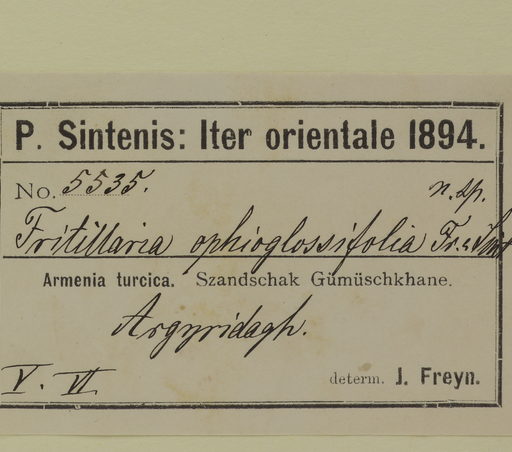 P. Sintenis: Iter orientale 1894.
No. 5535. n. sp.
Fritillaria ophioglossifolia Fr. &
Armenia turcica. Szandschak Gümüschkhane.
Argyridagh.
V. VI.
determ. J. Freyn.